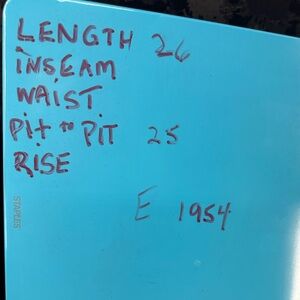 LENGTH 26
INSEAM
WAIST
Pit to PIT 25
RISE
STAPLES
E 1954